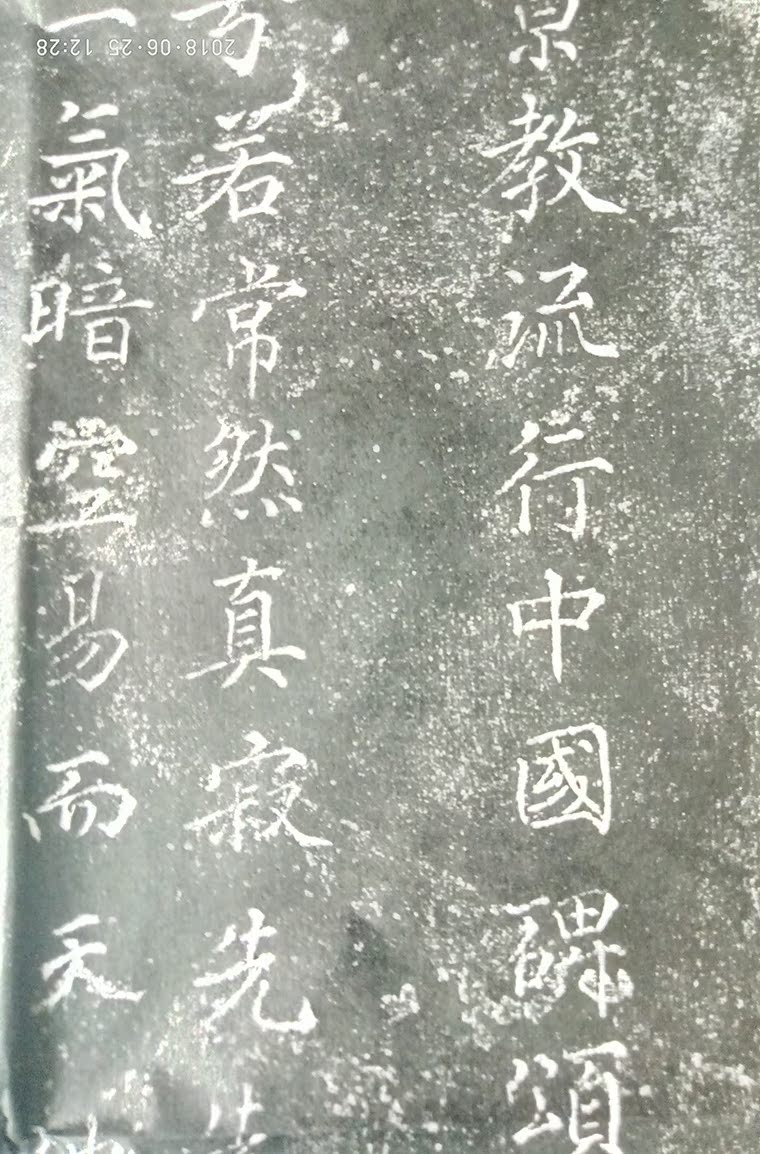 景教流行中國碑頌
若常然真寂先
氣暗空易而天
2018·06·25 12:28